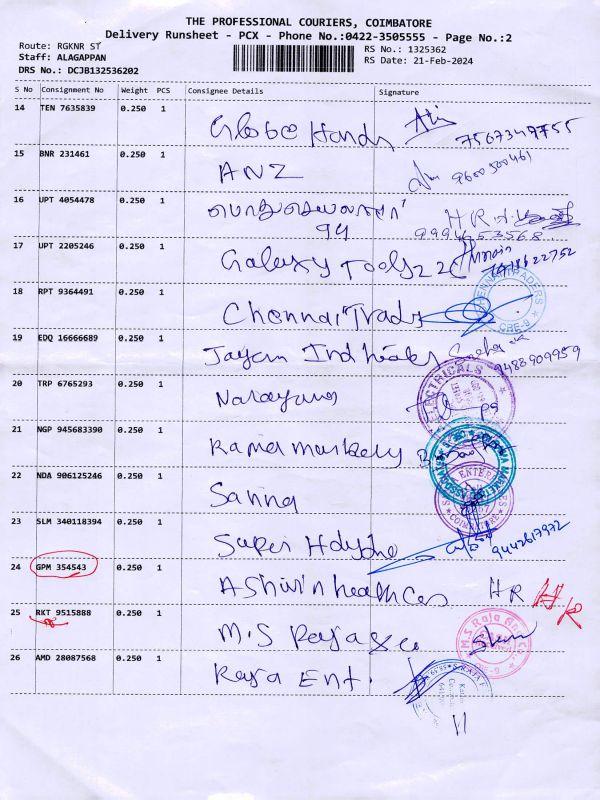 THE PROFESSIONAL COURIERS, COIMBATORE
Delivery Runsheet - PCX - Phone No.:0422-3505555 - Page No.:2
Route: RGKNR ST
RS No.: 1325362
Staff: ALAGAPPAN
RS Date: 21-Feb-2024
DRS No.: DCJB132536202
S No Consignment No Weight PCS Consignee Details Signature
14 TEN 7635839 0.250 1 Globe Hands 7567347755
15 BNR 231461 0.250 1 ANZ 9600500461
16 UPT 4054478 0.250 1 HR
94 9994453568
17 UPT 2205246 0.250 1 Galaxy Tools 22
18 RPT 9364491 0.250 1 Chennai Trades CHENNAI TRADERS CBE-9
19 EDQ 16666689 0.250 1 Jayam Sneha 9488909959
20 TRP 6765293 0.250 1 Narayana ELECTRICALS
21 NGP 945683390 0.250 1 Rama
22 NDA 906125246 0.250 1 Sanna ENTER COIMBATORE
23 SLM 340118394 0.250 1 Super 9442617972
24 GPM 354543 0.250 1 Ashwin healthcas HR HR
25 RKT 9515888 0.250 1 M.S Raja & co M.S Raja CBE-9
26 AMD 28087568 0.250 1 Raja Ent.